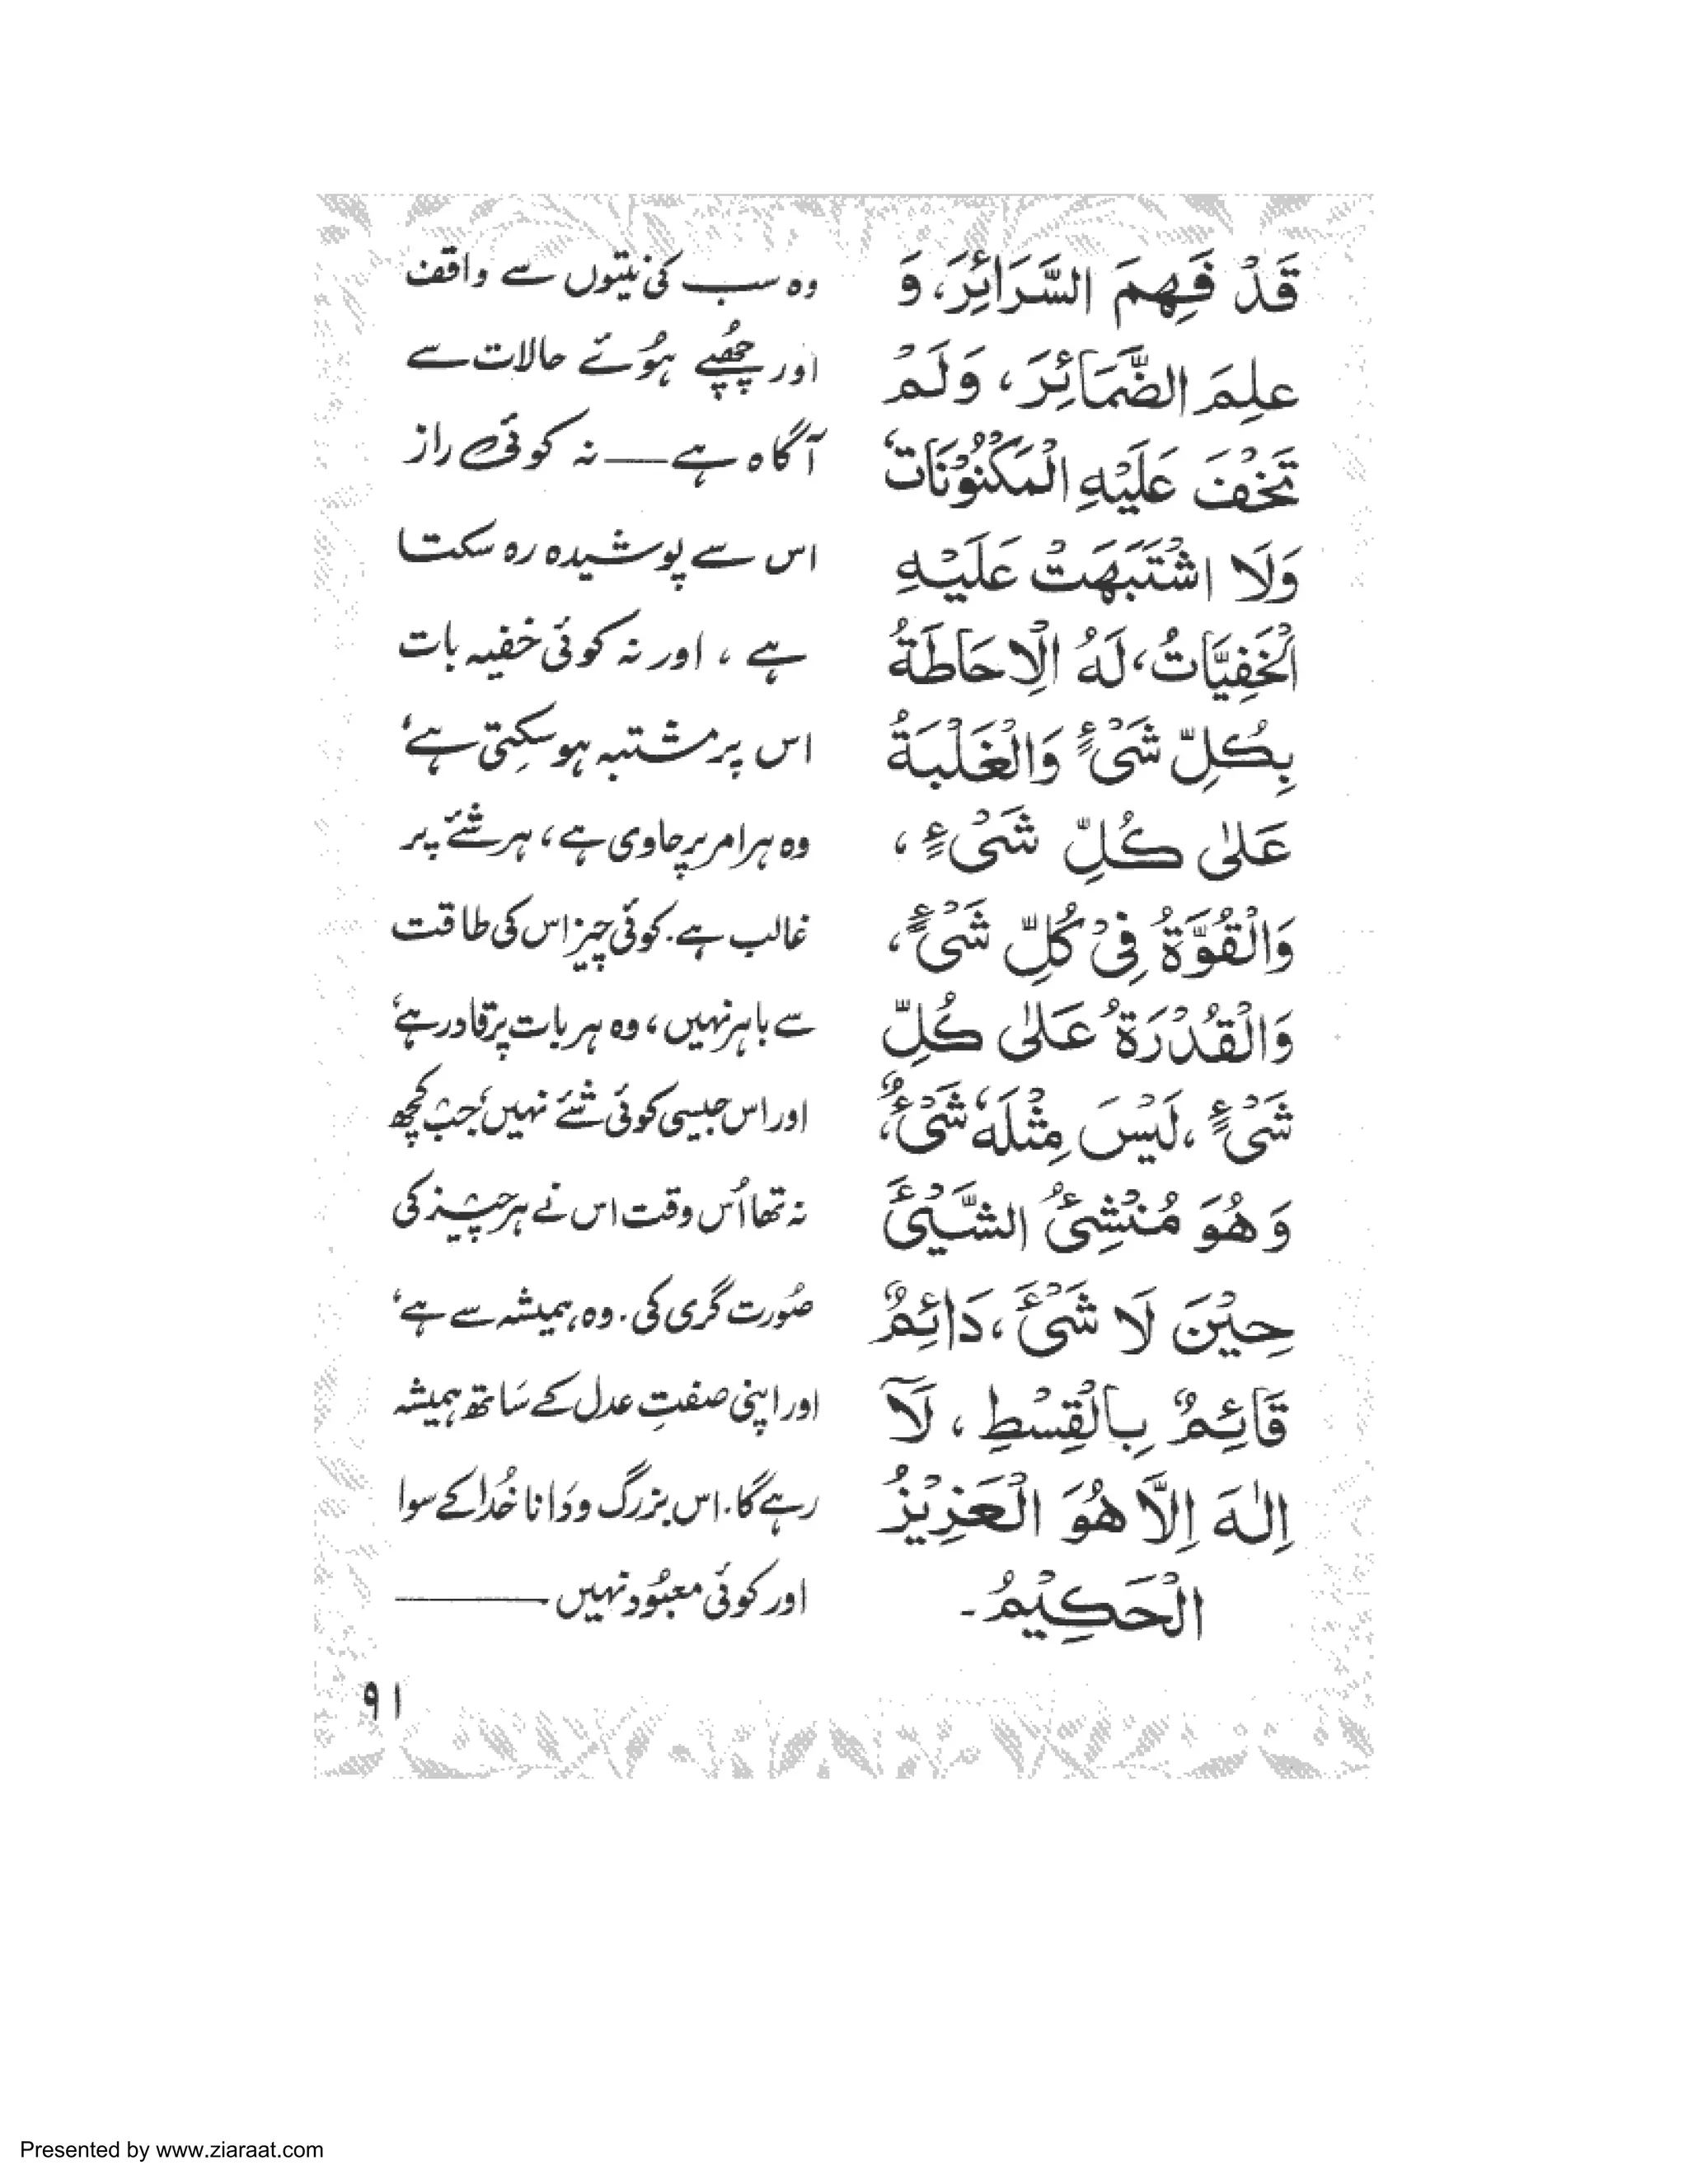 قَدْ فَهِمَ السَّرَائِرَ، وَ
عَلِمَ الضَّمَائِرَ، وَلَمْ
تَخْفَ عَلَيْهِ الْمَكْنُوْنَاتُ،
وَلَا اشْتَبَهَتْ عَلَيْهِ
الْخَفِيَّاتُ، لَهُ الْاِحَاطَةُ
بِكُلِّ شَىْءٍ وَالْغَلْبَةُ
عَلٰى كُلِّ شَىْءٍ،
وَالْقُوَّةُ فِىْ كُلِّ شَىْءٍ،
وَالْقُدْرَةُ عَلٰى كُلِّ
شَىْءٍ، لَيْسَ مِثْلَهٗ شَىْءٌ،
وَهُوَ مُنْشِئُ الشَّيْءَ
حِيْنَ لَا شَىْءَ، دَائِمٌ
قَائِمٌ بِالْقِسْطِ، لَآ
اِلٰهَ اِلَّا هُوَ الْعَزِيْزُ
الْحَكِيْمُ۔
وہ سب کی نیتوں سے واقف
اور چھُپے ہوُئے حالات سے
آگاہ ہے — نہ کوئی راز
اس سے پوشیدہ رہ سکتا
ہے، اور نہ کوئی خفیہ بات
اس پر مشتبہ ہو سکتی ہے،
وہ ہر امر پر حاوی ہے، ہر شئے پر
غالب ہے۔ کوئی چیز اس کی طاقت
سے باہر نہیں، وہ ہر بات پر قادر ہے،
اور اس جیسی کوئی شئے نہیں، جب کچھ
نہ تھا اُس وقت اس نے ہر چیز کی
صُورت گری کی۔ وہ ہمیشہ سے ہے،
اور اپنی صفتِ عدل کے ساتھ ہمیشہ
رہے گا۔ اس بزرگ و دانا خُدا کے سوا
اور کوئی معبُود نہیں۔
۹۱
Presented by www.ziaraat.com